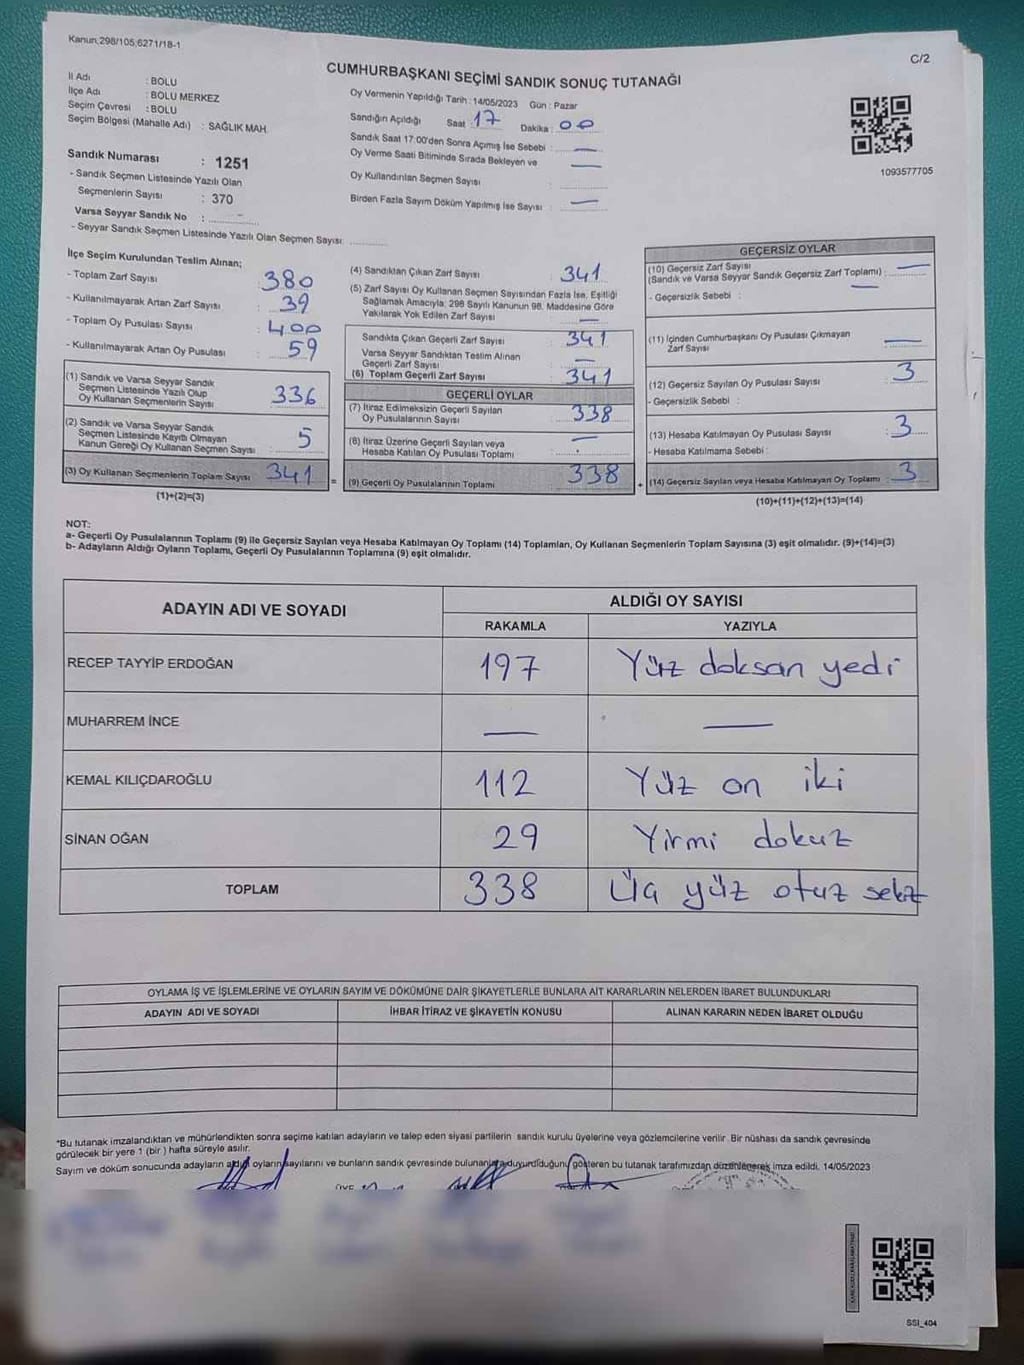 Kanun,298/105,6271/18-1
C/2
CUMHURBAŞKANI SEÇİMİ SANDIK SONUÇ TUTANAĞI
İl Adı : BOLU
İlçe Adı : BOLU MERKEZ
Seçim Çevresi : BOLU
Seçim Bölgesi (Mahalle Adı) : SAĞLIK MAH.
Sandık Numarası : 1251
- Sandık Seçmen Listesinde Yazılı Olan
Seçmenlerin Sayısı : 370
Varsa Seyyar Sandık No :
- Seyyar Sandık Seçmen Listesinde Yazılı Olan Seçmen Sayısı:
Oy Vermenin Yapıldığı Tarih : 14/05/2023 Gün : Pazar
Sandığın Açıldığı Saat 17 Dakika : 00
Sandık Saat 17:00'den Sonra Açımış İse Sebebi : —
Oy Verme Saati Bitiminde Sırada Bekleyen ve —
Oy Kullandırılan Seçmen Sayısı :
Birden Fazla Sayım Döküm Yapılmış İse Sayısı : —
1093577705
İlçe Seçim Kurulundan Teslim Alınan;
- Toplam Zarf Sayısı : 380
- Kullanılmayarak Artan Zarf Sayısı : 39
- Toplam Oy Pusulası Sayısı : 400
- Kullanılmayarak Artan Oy Pusulası : 59
(1) Sandık ve Varsa Seyyar Sandık
Seçmen Listesinde Yazılı Olup
Oy Kullanan Seçmenlerin Sayısı : 336
(2) Sandık ve Varsa Seyyar Sandık
Seçmen Listesinde Kayıtlı Olmayan
Kanun Gereği Oy Kullanan Seçmen Sayısı : 5
(3) Oy Kullanan Seçmenlerin Toplam Sayısı 341
(1)+(2)=(3)
(4) Sandıktan Çıkan Zarf Sayısı : 341
(5) Zarf Sayısı Oy Kullanan Seçmen Sayısından Fazla İse, Eşitliği
Sağlamak Amacıyla; 298 Sayılı Kanunun 98. Maddesine Göre
Yakılarak Yok Edilen Zarf Sayısı : —
Sandıkta Çıkan Geçerli Zarf Sayısı : 341
Varsa Seyyar Sandıktan Teslim Alınan
Geçerli Zarf Sayısı : —
(6) Toplam Geçerli Zarf Sayısı : 341
GEÇERLİ OYLAR
(7) İtiraz Edilmeksizin Geçerli Sayılan
Oy Pusulalarının Sayısı : 338
(8) İtiraz Üzerine Geçerli Sayılan veya
Hesaba Katılan Oy Pusulası Toplamı : —
= (9) Geçerli Oy Pusulalarının Toplamı : 338
GEÇERSİZ OYLAR
(10) Geçersiz Zarf Sayısı
(Sandık ve Varsa Seyyar Sandık Geçersiz Zarf Toplamı) : —
- Geçersizlik Sebebi : —
(11) İçinden Cumhurbaşkanı Oy Pusulası Çıkmayan
Zarf Sayısı : —
(12) Geçersiz Sayılan Oy Pusulası Sayısı : 3
- Geçersizlik Sebebi :
(13) Hesaba Katılmayan Oy Pusulası Sayısı : 3
- Hesaba Katılmama Sebebi :
+ (14) Geçersiz Sayılan veya Hesaba Katılmayan Oy Toplamı : 3
(10)+(11)+(12)+(13)=(14)
NOT:
a- Geçerli Oy Pusulalarının Toplamı (9) ile Geçersiz Sayılan veya Hesaba Katılmayan Oy Toplamı (14) Toplamları, Oy Kullanan Seçmenlerin Toplam Sayısına (3) eşit olmalıdır. (9)+(14)=(3)
b- Adayların Aldığı Oyların Toplamı, Geçerli Oy Pusulalarının Toplamına (9) eşit olmalıdır.
ADAYIN ADI VE SOYADI
ALDIĞI OY SAYISI
RAKAMLA YAZIYLA
RECEP TAYYİP ERDOĞAN 197 Yüz doksan yedi
MUHARREM İNCE — —
KEMAL KILIÇDAROĞLU 112 Yüz on iki
SİNAN OĞAN 29 Yirmi dokuz
TOPLAM 338 Üç yüz otuz sekiz
OYLAMA İŞ VE İŞLEMLERİNE VE OYLARIN SAYIM VE DÖKÜMÜNE DAİR ŞİKAYETLERLE BUNLARA AİT KARARLARIN NELERDEN İBARET BULUNDUKLARI
ADAYIN ADI VE SOYADI İHBAR İTİRAZ VE ŞİKAYETİN KONUSU ALINAN KARARIN NEDEN İBARET OLDUĞU
*Bu tutanak imzalandıktan ve mühürlendikten sonra seçime katılan adayların ve talep eden siyasi partilerin sandık kurulu üyelerine veya gözlemcilerine verilir. Bir nüshası da sandık çevresinde
görülecek bir yere 1 (bir ) hafta süreyle asılır.
Sayım ve döküm sonucunda adayların aldığı oyların sayılarını ve bunların sandık çevresinde bulunanlara duyurdluğunu gösteren bu tutanak tarafımızdan düzenlenerek imza edildi. 14/05/2023
SSI_404